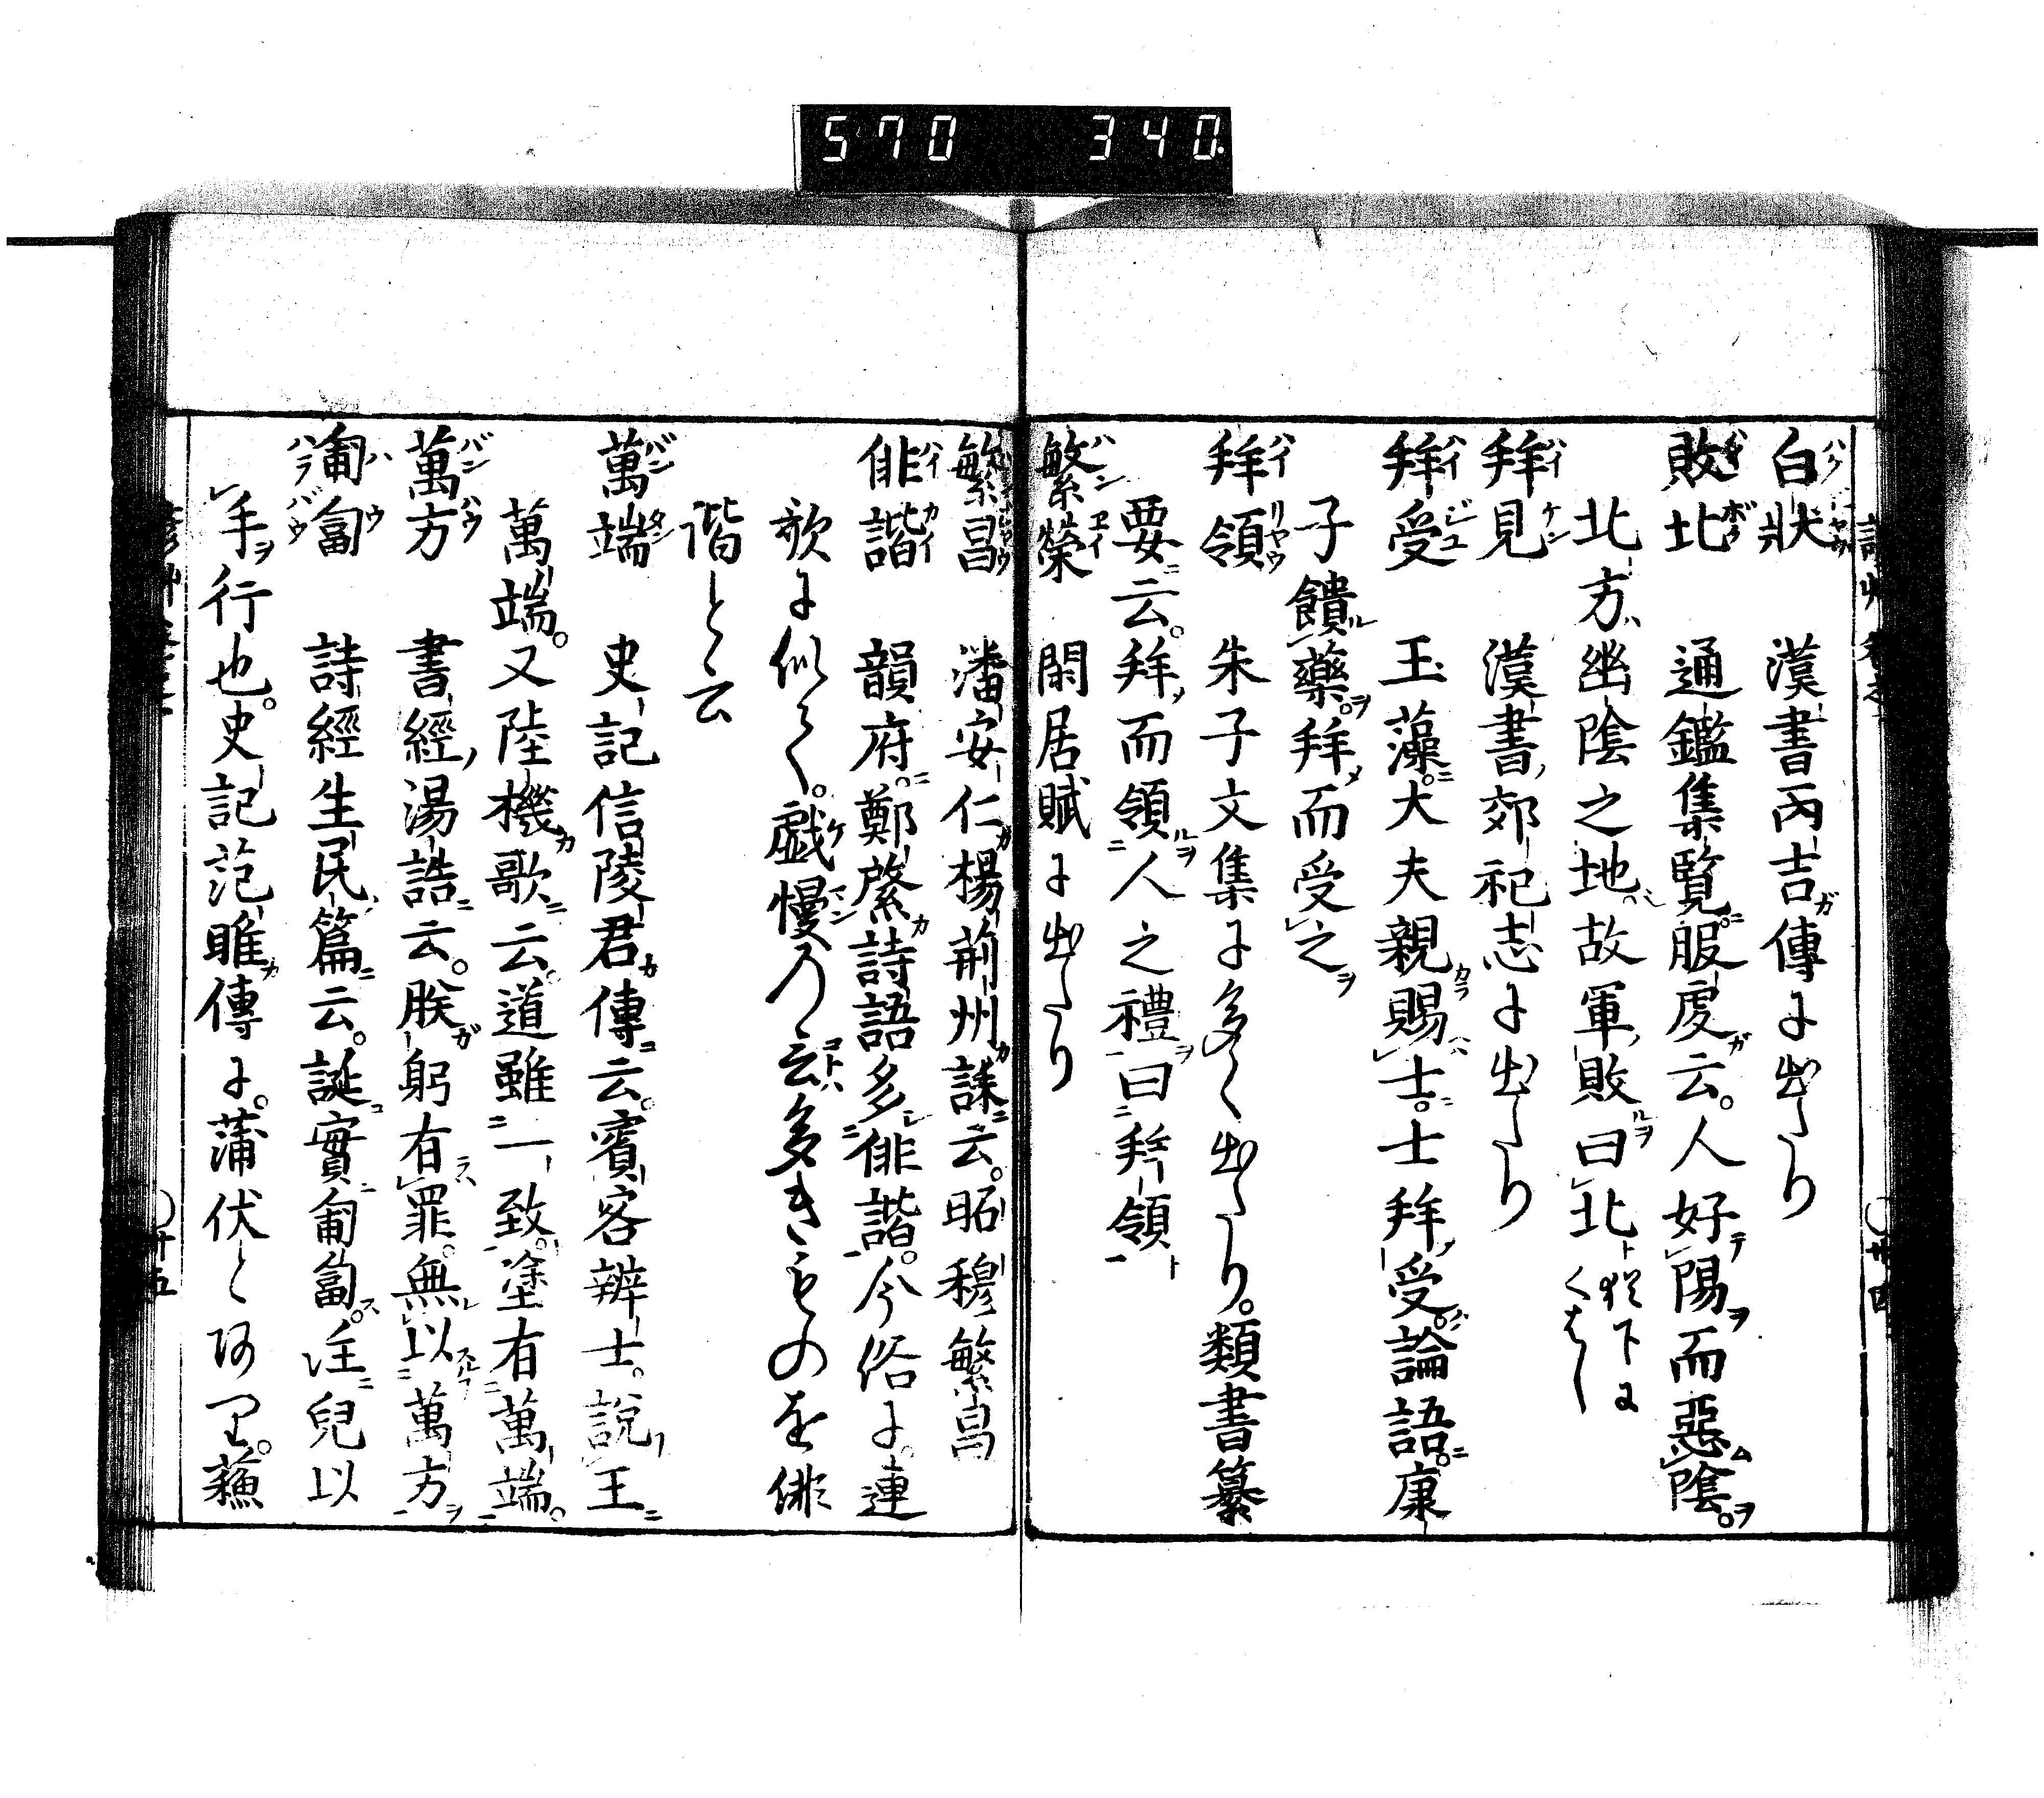 570 340
白狀 漢書丙吉傳に出たり
敗北 通鑑集覧服虔云。人好陽而惡陰。
北方幽陰之地。故軍敗曰北 猶下にくはし
拜見 漢書郊祀志に出たり
拜受 玉藻。大夫親賜士。士拜受。論語。康
子饋藥。拜而受之
拜領 朱子文集に多く出たり。類書纂
要云。拜而領人之禮曰拜領
繁榮 閑居賦に出たり
繁昌 潘安仁楊荊州誄云。昭穆繁昌
俳諧 韻府。鄭綮詩語多俳諧。今俗に。連
歌に似て。戯慢の言多きものを俳
諧と云
萬端 史記信陵君傳云。賓客辨士。說王
萬端。又陸機歌云。道雖一致。塗有萬端。
萬方 書經湯誥云。朕躬有罪。無以萬方
匍匐 詩經生民篇云。誕實匍匐。注兒以
手行也。史記范雎傳に。蒲伏とあり。蘓